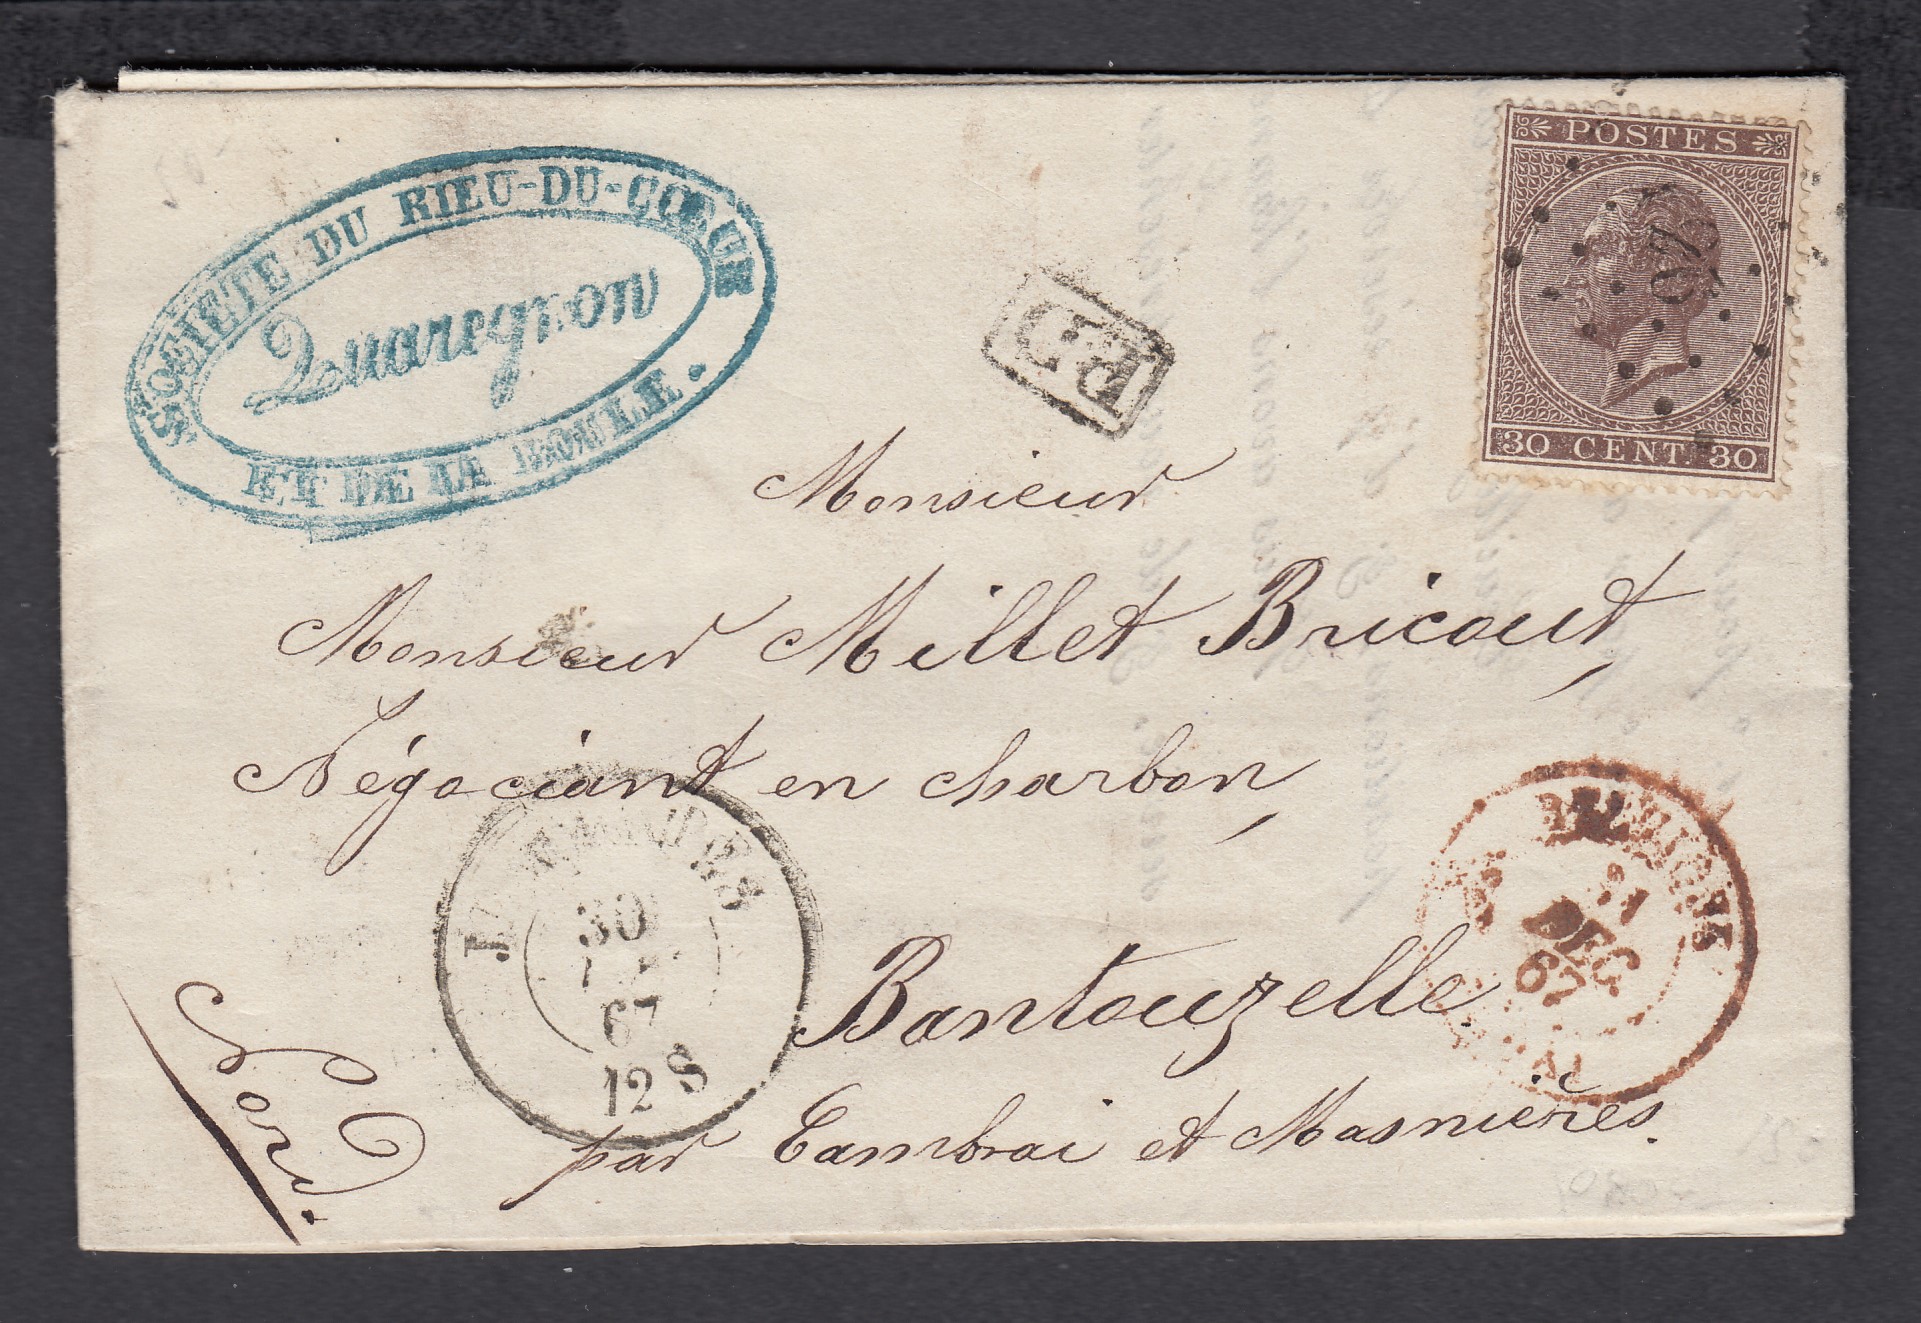 SOCIÉTÉ DU RIEU-DU-CŒUR
Quaregnon
ET DE LA BOULE.
PD
POSTES
30 CENT. 30
Monsieur
Monsieur Millet Bricout,
Négociant en charbon,
Bantouzelle
par Cambrai et Masnières.
Nord.
JEMMAPES
30
67
12 S
BELGIQUE
31
DEC
67